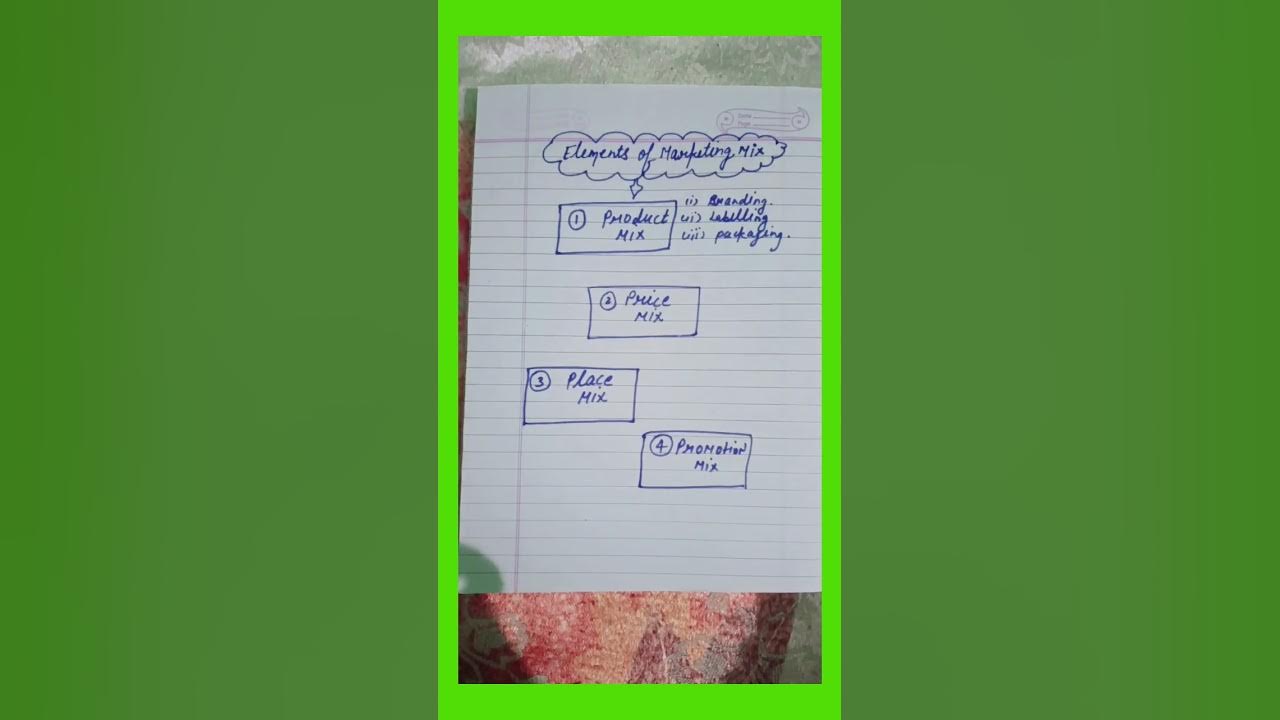 Date
Page
Elements of Marketing Mix
① Product
Mix
(i) Branding.
(ii) Labelling
(iii) packaging.
② Price
Mix
③ Place
Mix
④ Promotion
Mix